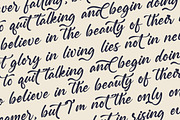 ver falling, but
to quit talking and begin doing
to believe in the beauty of their d
t glory in living lies not in nev
to quit talking and begin doin
o believe in the beauty of their
eamer, but I'm not the only on
t in rising e